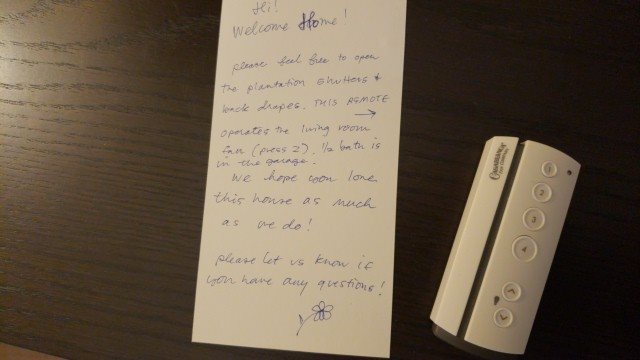 Hi!
Welcome Home!
please feel free to open
the plantation shutters &
back drapes. THIS REMOTE
operates the living room
fan (press 2). 1/2 bath is
in the garage.
We hope you love
this house as much
as we do!
please let us know if
you have any questions!
CASABLANCA
FAN COMPANY
1
2
3
4